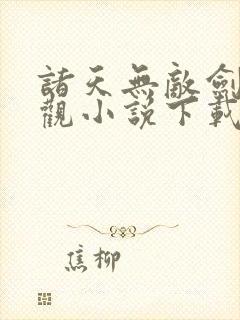 諸天無敵劍
觀小說下載
焦柳